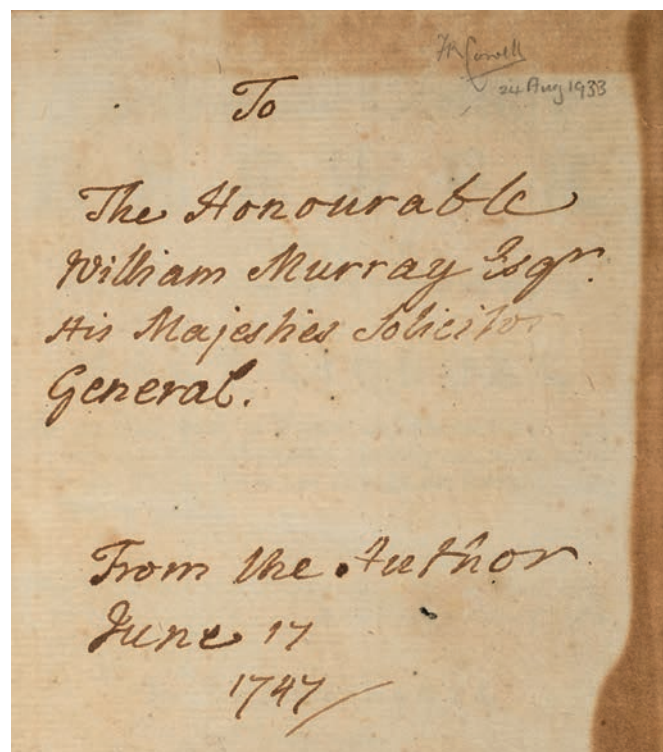 FR Cowell
24 Aug 1933
To
The Honourable
William Murray Esqr.
His Majesties Solicitor
General.
From the Author
June 17
1747